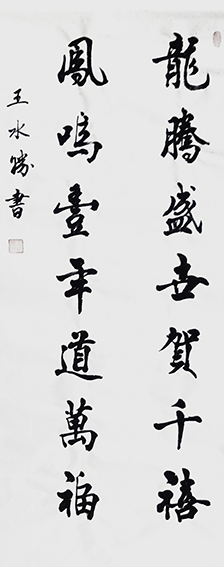 龍騰盛世賀千禧
鳳鳴臺年道萬福
王水勝書